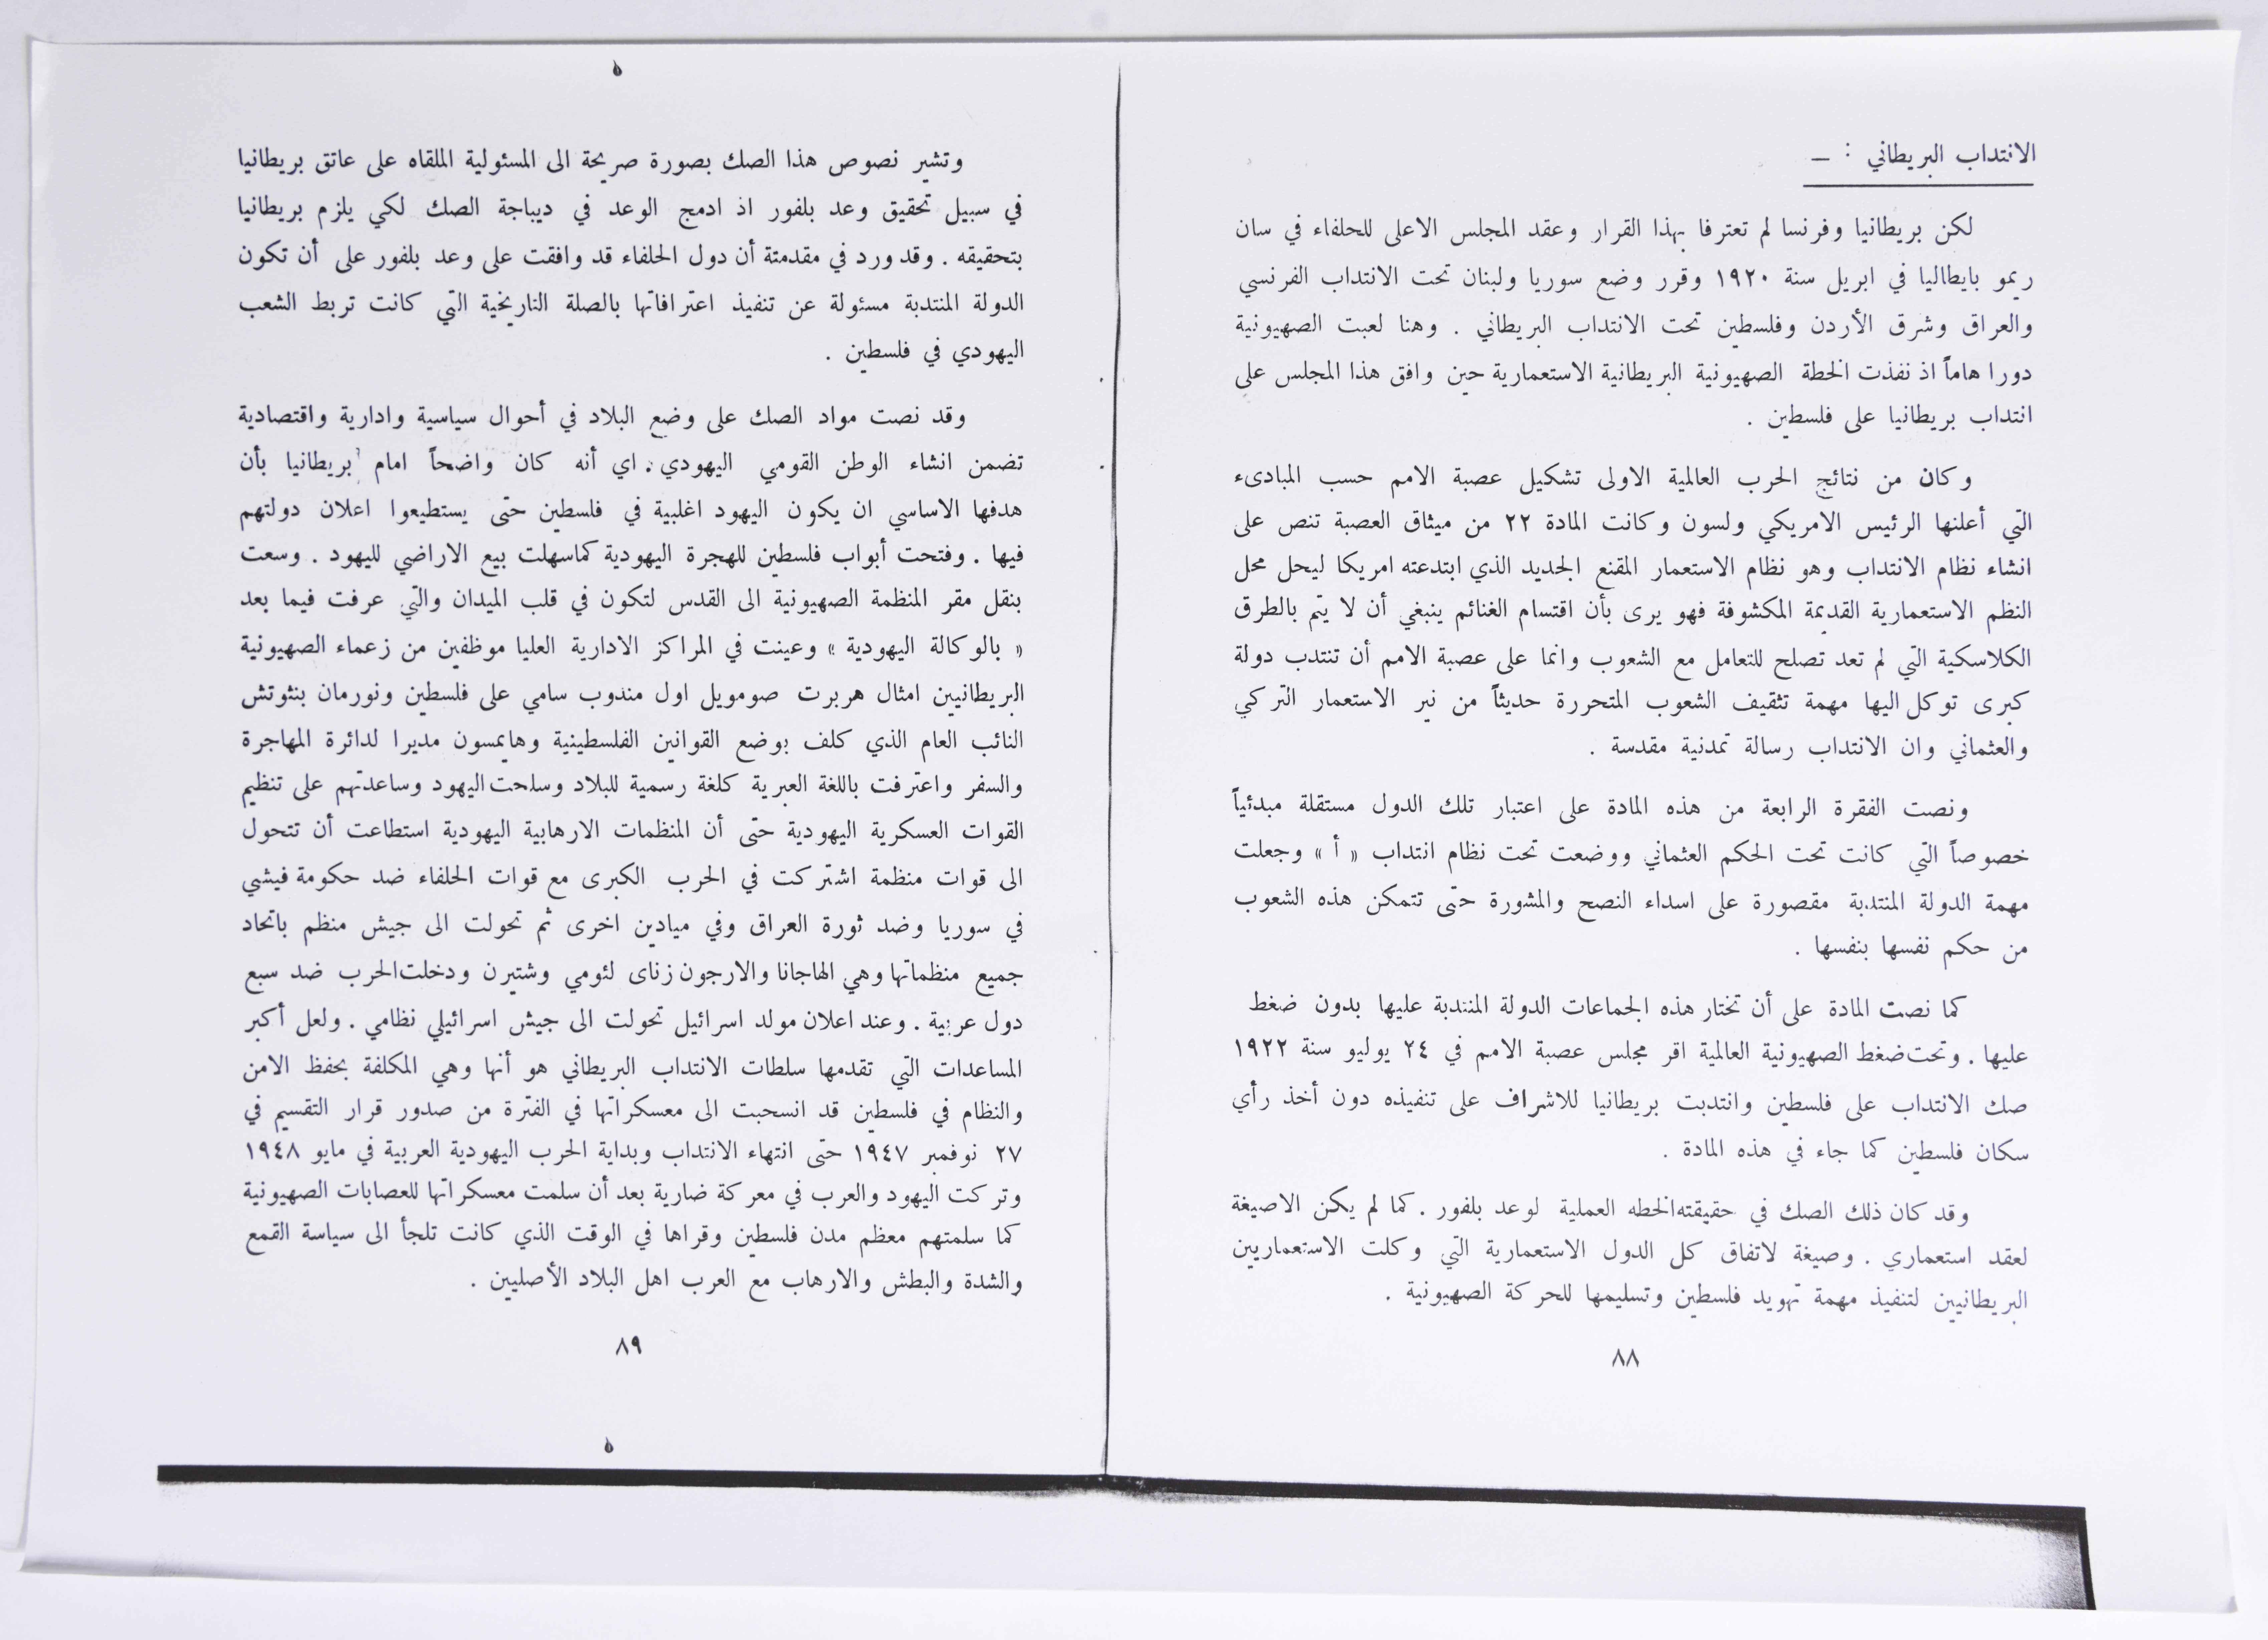 الانتداب البريطاني : –
لكن بريطانيا وفرنسا لم تعترفا بهذا القرار وعقد المجلس الاعلى للحلفاء في سان
ريمو بايطاليا في ابريل سنة ١٩٢٠ وقرر وضع سوريا ولبنان تحت الانتداب الفرنسي
والعراق وشرق الأردن وفلسطين تحت الانتداب البريطاني . وهنا لعبت الصهيونية
دورا هاماً اذ نفذت الخطة الصهيونية البريطانية الاستعمارية حين وافق هذا المجلس على
انتداب بريطانيا على فلسطين .
وكان من نتائج الحرب العالمية الاولى تشكيل عصبة الامم حسب المبادىء
التي أعلنها الرئيس الامريكي ولسون وكانت المادة ٢٢ من ميثاق العصبة تنص على
انشاء نظام الانتداب وهو نظام الاستعمار المقنع الجديد الذي ابتدعته امريكا ليحل محل
النظم الاستعمارية القديمة المكشوفة فهو يرى بأن اقتسام الغنائم ينبغي أن لا يتم بالطرق
الكلاسكية التي لم تعد تصلح للتعامل مع الشعوب وانما على عصبة الامم أن تنتدب دولة
كبرى توكل اليها مهمة تثقيف الشعوب المتحررة حديثاً من نير الاستعمار التركي
والعثماني وان الانتداب رسالة تمدنية مقدسة .
ونصت الفقرة الرابعة من هذه المادة على اعتبار تلك الدول مستقلة مبدئياً
خصوصاً التي كانت تحت الحكم العثماني ووضعت تحت نظام انتداب « أ » وجعلت
مهمة الدولة المنتدبة مقصورة على اسداء النصح والمشورة حتى تتمكن هذه الشعوب
من حكم نفسها بنفسها .
كما نصت المادة على أن تختار هذه الجماعات الدولة المنتدبة عليها بدون ضغط
عليها . وتحت ضغط الصهيونية العالمية اقر مجلس عصبة الامم في ٢٤ يوليو سنة ١٩٢٢
صك الانتداب على فلسطين وانتدبت بريطانيا للاشراف على تنفيذه دون أخذ رأي
سكان فلسطين كما جاء في هذه المادة .
وقد كان ذلك الصك في حقيقته الخطه العملية لوعد بلفور . كما لم يكن الاصيغة
لعقد استعماري . وصيغة لاتفاق كل الدول الاستعمارية التي وكلت الاستعماريين
البريطانيين لتنفيذ مهمة تهويد فلسطين وتسليمها للحركة الصهيونية .
٨٨
وتشير نصوص هذا الصك بصورة صريحة الى المسئولية الملقاه على عاتق بريطانيا
في سبيل تحقيق وعد بلفور اذ ادمج الوعد في ديباجة الصك لكي يلزم بريطانيا
بتحقيقه . وقد ورد في مقدمتة أن دول الحلفاء قد وافقت على وعد بلفور على أن تكون
الدولة المنتدبة مسئولة عن تنفيذ اعترافاتها بالصلة التاريخية التي كانت تربط الشعب
اليهودي في فلسطين .
وقد نصت مواد الصك على وضع البلاد في أحوال سياسية وادارية واقتصادية
تضمن انشاء الوطن القومي اليهودي . اي أنه كان واضحاً امام بريطانيا بأن
هدفها الاساسي ان يكون اليهود اغلبية في فلسطين حتى يستطيعوا اعلان دولتهم
فيها . وفتحت أبواب فلسطين للهجرة اليهودية كما سهلت بيع الاراضي لليهود . وسعت
بنقل مقر المنظمة الصهيونية الى القدس لتكون في قلب الميدان والتي عرفت فيما بعد
« بالوكالة اليهودية » وعينت في المراكز الادارية العليا موظفين من زعماء الصهيونية
البريطانيين امثال هربرت صومويل اول مندوب سامي على فلسطين ونورمان بنثوتش
النائب العام الذي كلف بوضع القوانين الفلسطينية وهايمسون مديرا لدائرة المهاجرة
والسفر واعترفت باللغة العبرية كلغة رسمية للبلاد وسلحت اليهود وساعدتهم على تنظيم
القوات العسكرية اليهودية حتى أن المنظمات الارهابية اليهودية استطاعت أن تتحول
الى قوات منظمة اشتركت في الحرب الكبرى مع قوات الحلفاء ضد حكومة فيشي
في سوريا وضد ثورة العراق وفي ميادين اخرى ثم تحولت الى جيش منظم باتحاد
جميع منظماتها وهي الهاجانا والارجون زناى لئومي وشتيرن ودخلت الحرب ضد سبع
دول عربية . وعند اعلان مولد اسرائيل تحولت الى جيش اسرائيلي نظامي . ولعل أكبر
المساعدات التي تقدمها سلطات الانتداب البريطاني هو أنها وهي المكلفة بحفظ الامن
والنظام في فلسطين قد انسحبت الى معسكراتها في الفترة من صدور قرار التقسيم في
٢٧ نوفمبر ١٩٤٧ حتى انتهاء الانتداب وبداية الحرب اليهودية العربية في مايو ١٩٤٨
وتركت اليهود والعرب في معركة ضارية بعد أن سلمت معسكراتها للعصابات الصهيونية
كما سلمتهم معظم مدن فلسطين وقراها في الوقت الذي كانت تلجأ الى سياسة القمع
والشدة والبطش والارهاب مع العرب اهل البلاد الأصليين .
٨٩